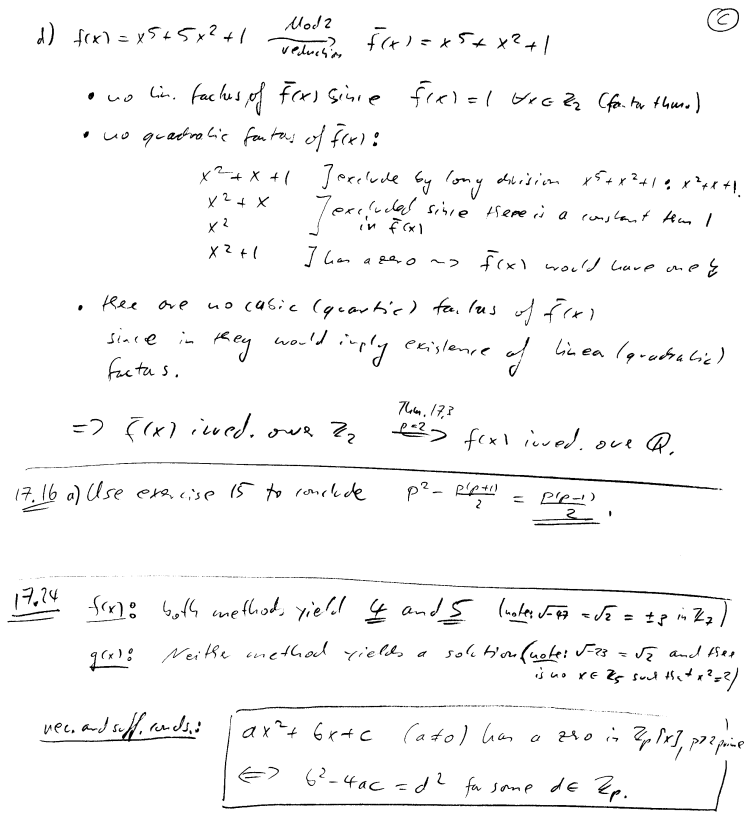 C
d) f(x) = x⁵ + 5x² + 1 —Mod 2 reduction→ f̄(x) = x⁵ + x² + 1
• no lin. factors of f̄(x) since f̄(x) = 1 ∀x ∈ ℤ₂ (factor thm.)
• no quadratic factors of f̄(x):
x² + x + 1 ] exclude by long division x⁵ + x² + 1 : x² + x + 1.
x² + x ] excluded since there is a constant term 1
x² in f̄(x)
x² + 1 ] has a zero ~> f̄(x) would have one
• there are no cubic (quartic) factors of f̄(x)
since in they would imply existence of linear (quadratic)
factors.
=> f̄(x) irred. over ℤ₂ =Thm. 17.3 p=2=> f(x) irred. over ℚ.
17.16 a) Use exercise 15 to conclude p² - p(p+1)/2 = p(p-1)/2.
17.24 f(x): both methods yield 4 and 5 (note: √-47 = √2 = ±3 in ℤ₇)
g(x): Neither method yields a solution (note: √-23 = √2 and there
is no x ∈ ℤ₅ such that x² = 2)
nec. and suff. conds.: ax² + bx + c (a≠0) has a zero in ℤₚ[x], p>2 prime
<=> b² - 4ac = d² for some d ∈ ℤₚ.